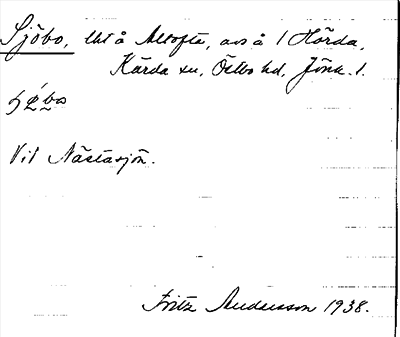 Sjöbo, lht å Altofta, avs å 1 Hörda,
Kärda sn, Östbo hd, Jönk. l.
Vid Nästasjön.
Fritz Andersson 1938.